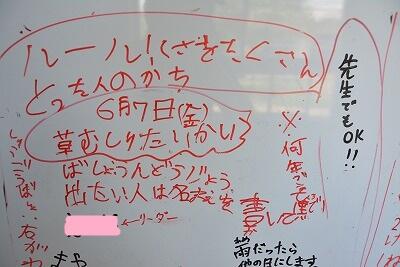 ルール!くさをたくさん
とった人のかち
6月7日(金)
草むしりたいかい
ばしょうんどうじょう
出たい人は名まえを
書いて
←リーダー
※何年
先生でも
OK!!
雨だったら
他の日にします
まや